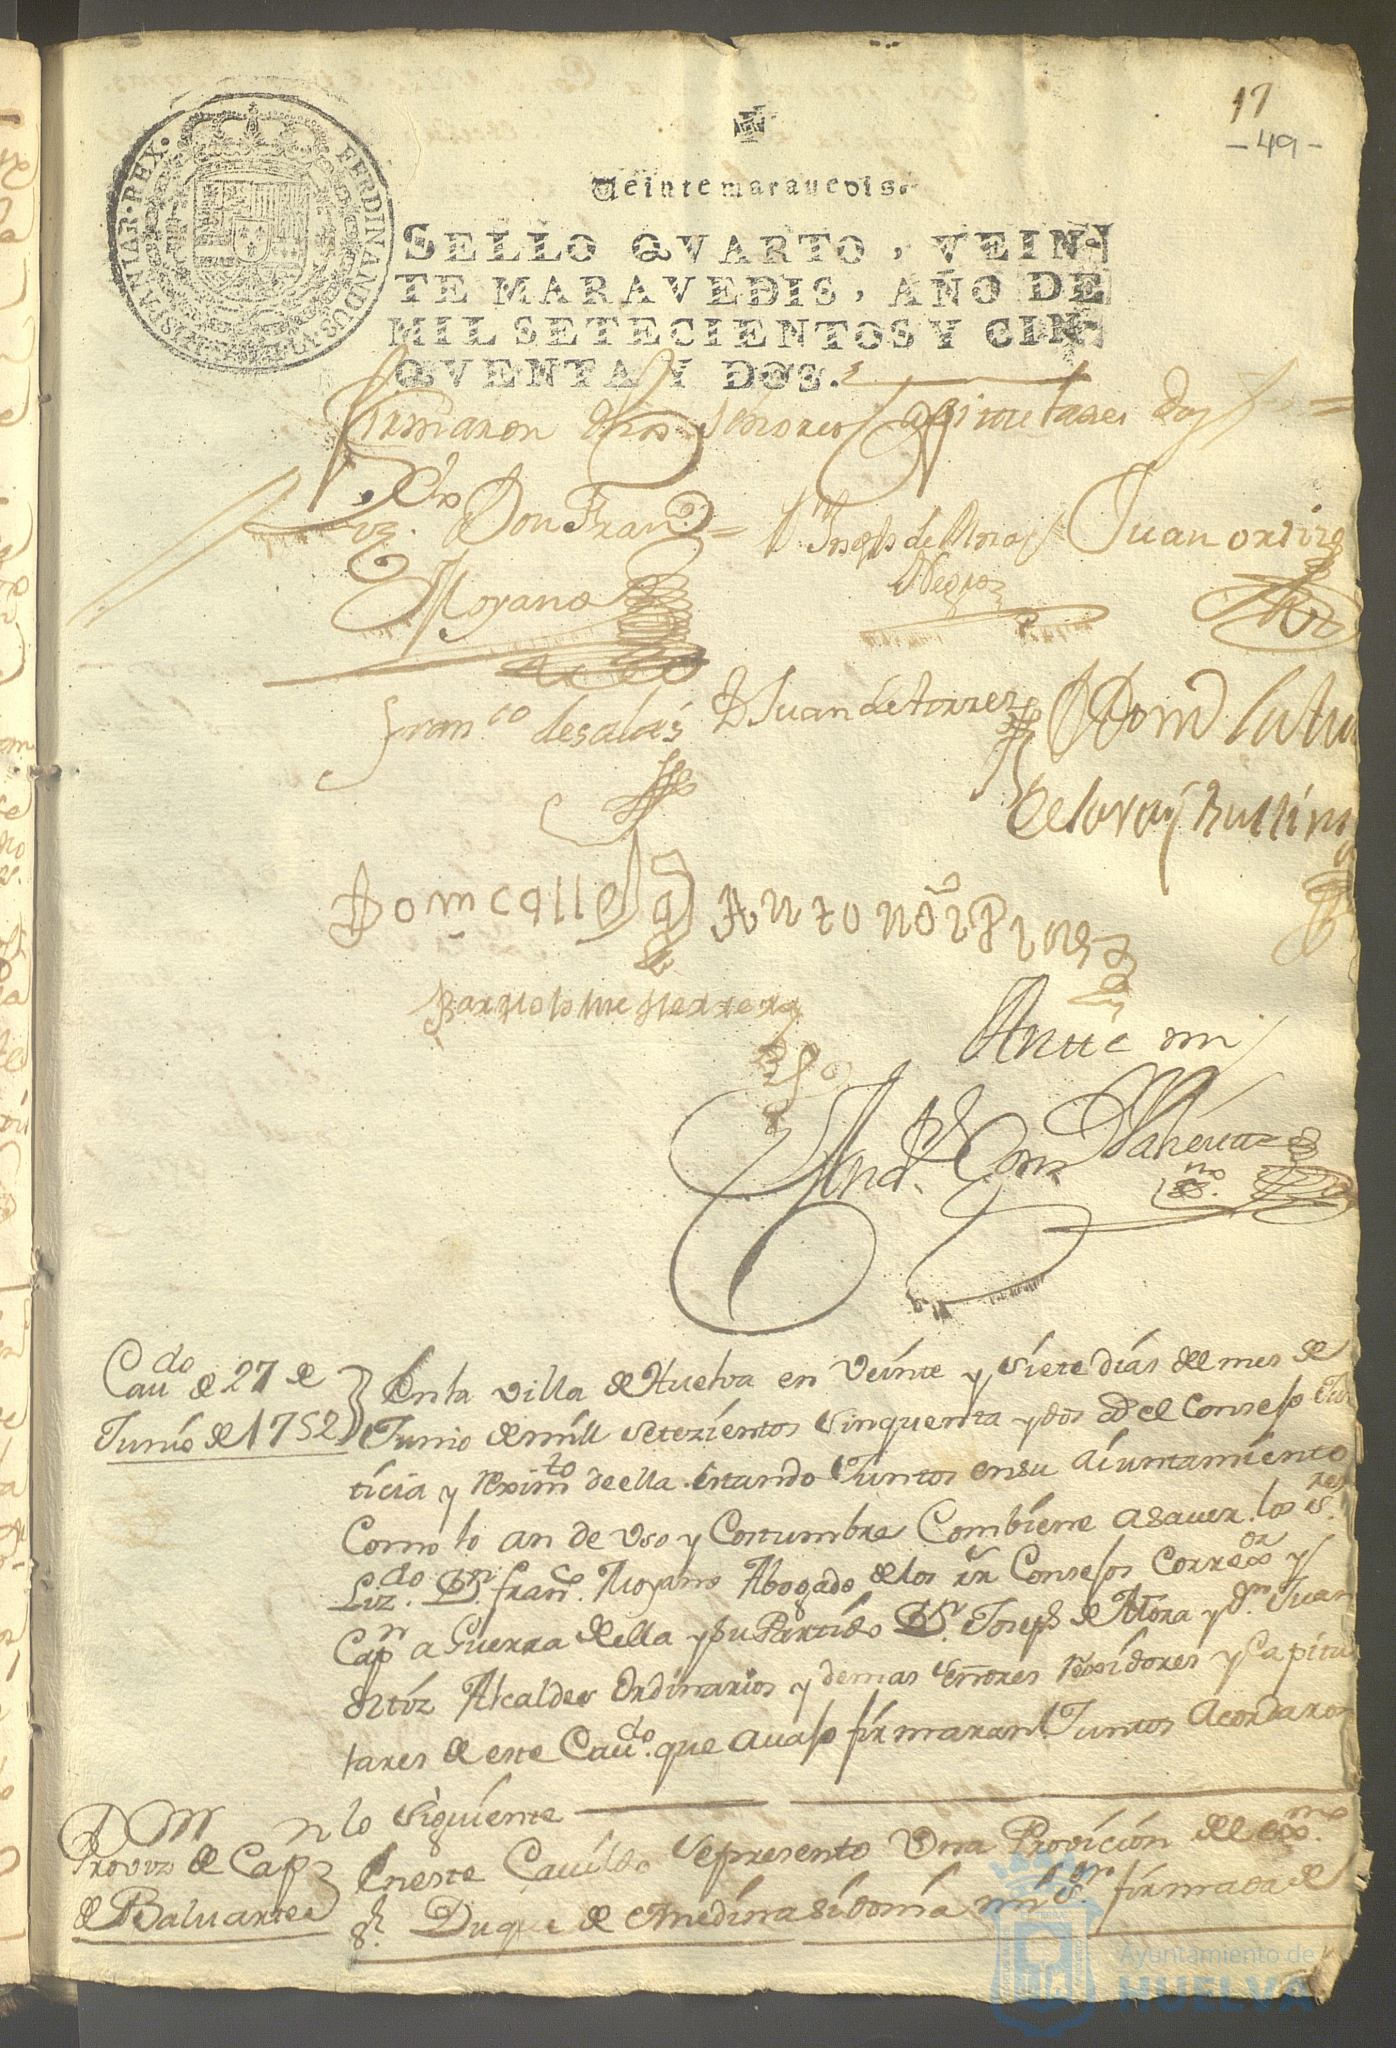 17
- 49 -
HISPANIAR · REX · FERDINANDUS · VI ·
Veinte maravedis.
SELLO QVARTO, VEIN-
TE MARAVEDIS, AÑO DE
MIL SETECIENTOS Y CIN-
QVENTA Y DOS.
Firmaron dhos señores Capitulares doy fe =
Liz.do Don Fran.co = Dn Joseph de Mora Juan ortiz
Moyano Negro
Fran.co de salas D Juan de torres
Dom calle Anton
Bartholome Herrera
Antte mi
Cav.do de 27 de
Junio de 1752
En la villa de Huelva en Veinte y Siete dias del mes de
Junio de mill setezientos sinquenta y dos el Consejo Jus
ticia y reximto de ella estando Juntos en su aiuntamiento
Como lo an de uso y Costumbre Combiene asaver los s.res
Liz.do Dn. fran.co Moyano Abogado de los rr Consejos Corre.or y
Capn a Guerra de ella y su Partido Dn. Joseph de Mora y Dn. Juan
Ortiz Alcaldes Ordinarios y demas señores rexidores y Capitu
lares de este Cavdo. que avajo firmaran Juntos acordaron
lo siguiente
Provizn de Capn
de Baluartes
En este Cavildo se presento Una Provicion del exmo.
sr. Duque de Medina sidonia mi sr. firmada de
Ayuntamiento de
HUELVA